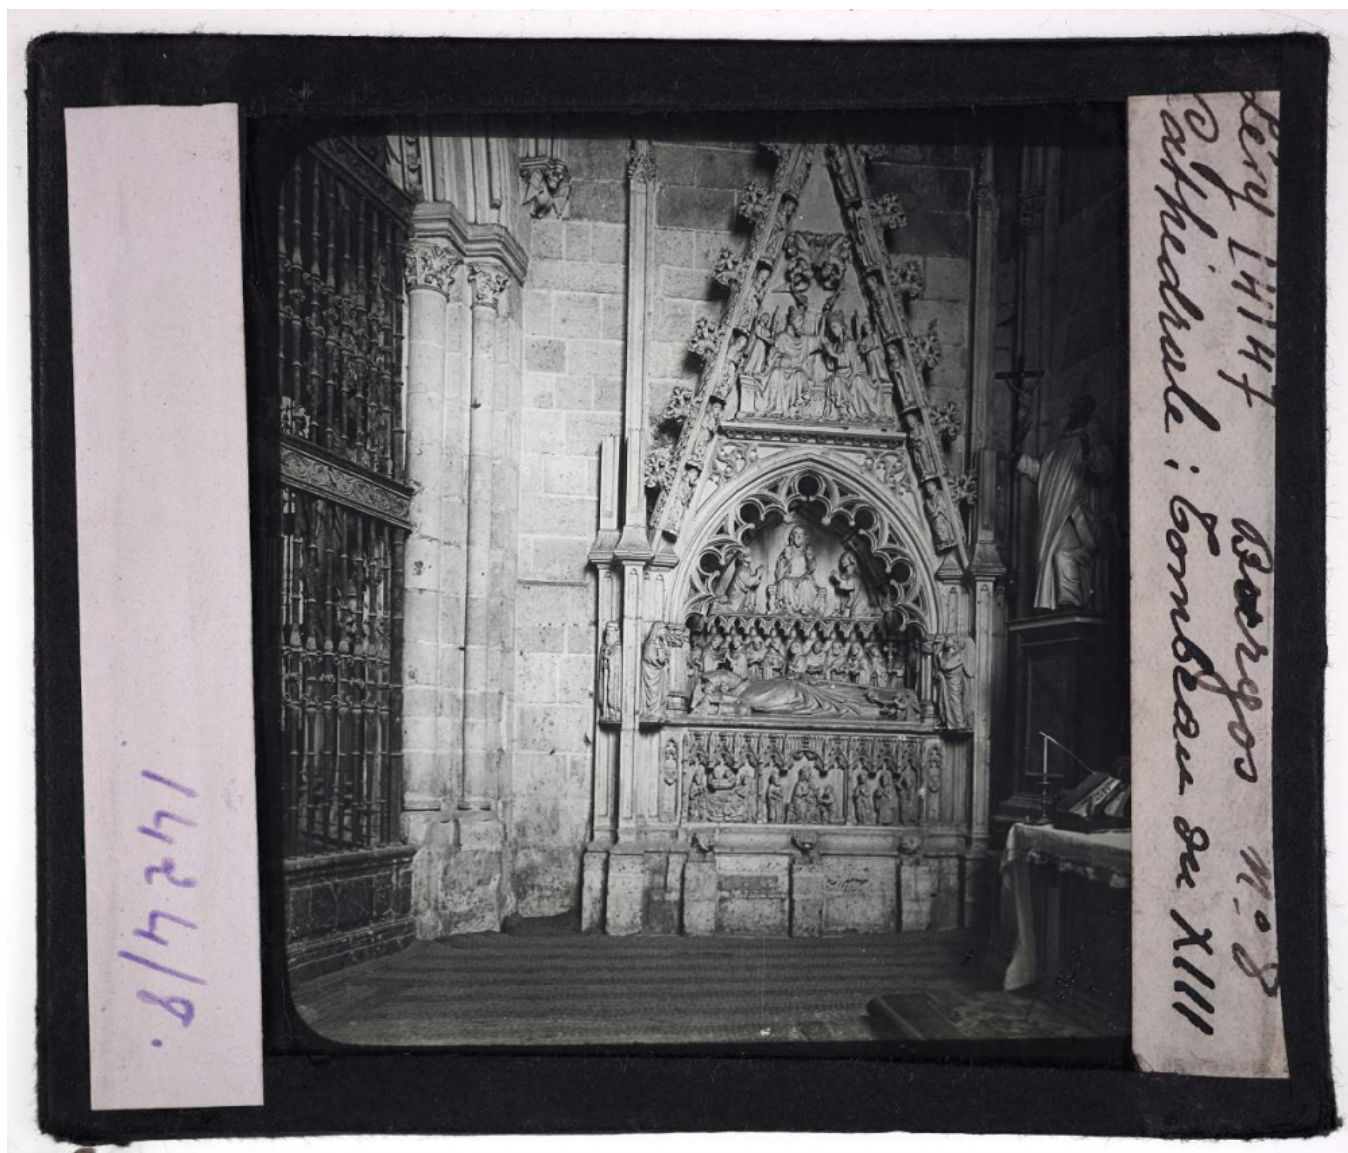 1424/8.
Lévy 14147 Burgos N.º 8
Cathédrale : Tombeau du XIII